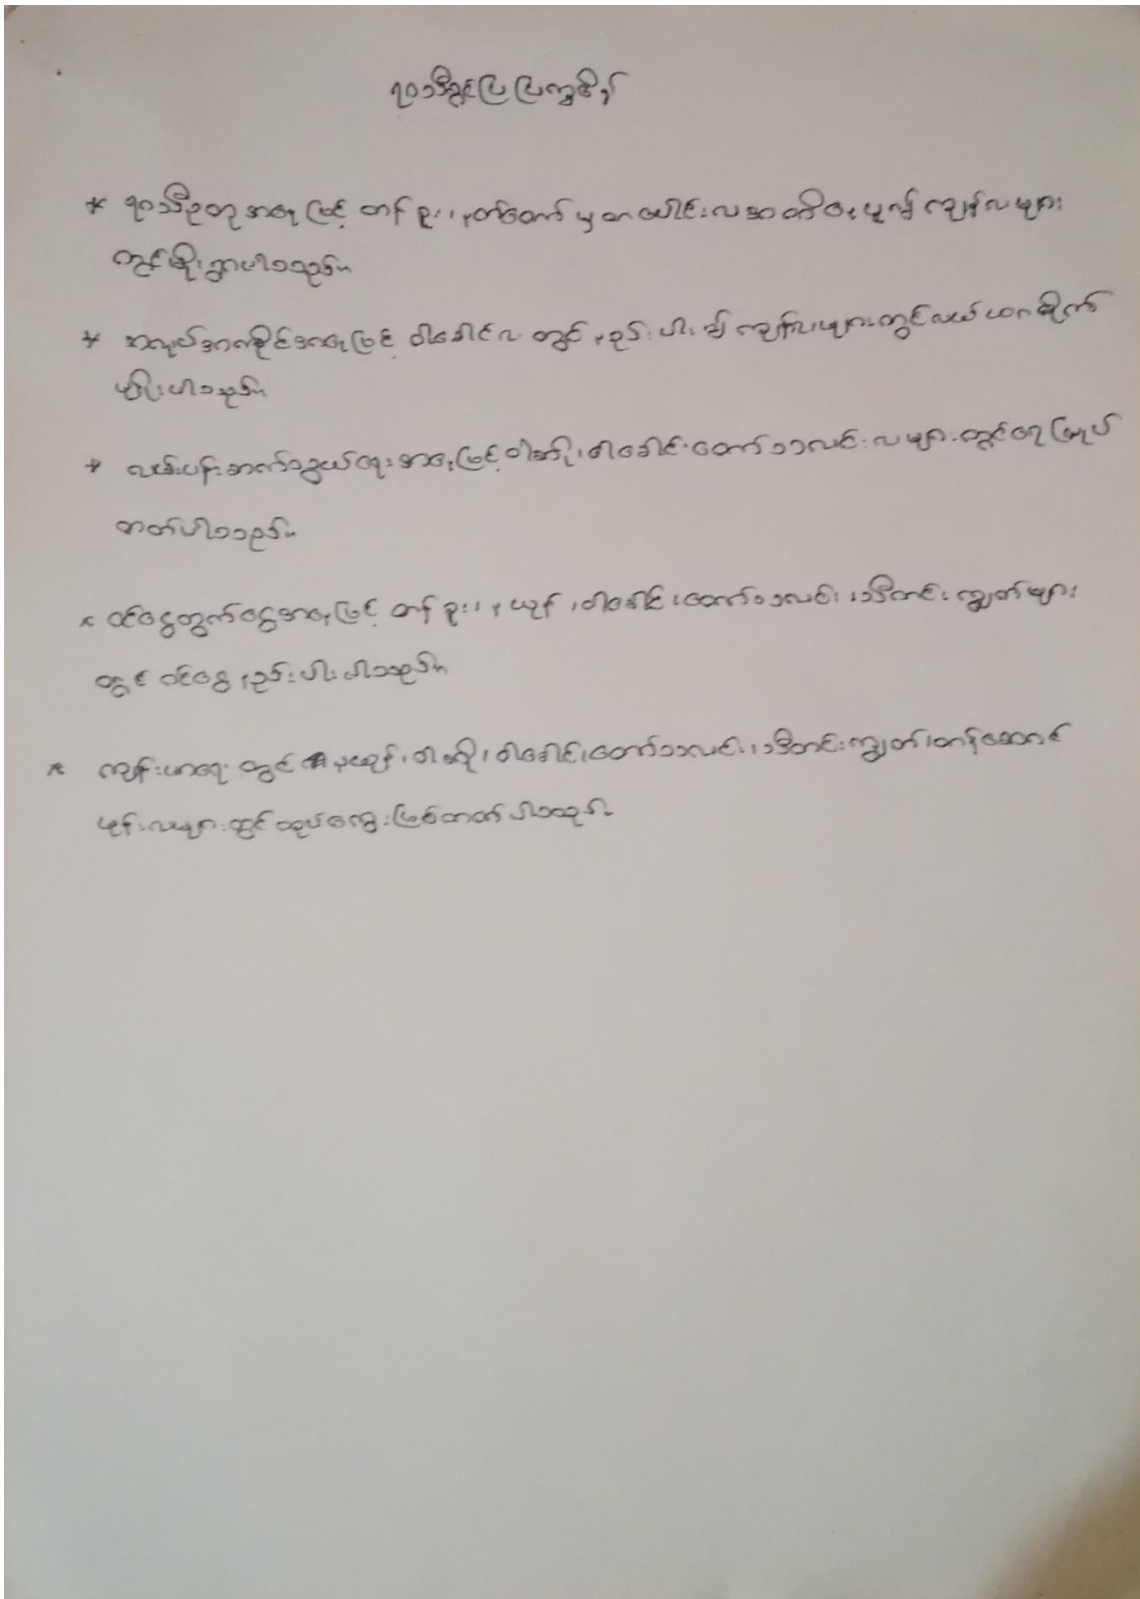 ရာသီခွင်ပြ ပြက္ခဒိန်
* ရာသီဥတု အနေဖြင့် တန်ခူး၊ နတ်တော် မှ တပေါင်းလအထိနေပူ၍ ကျန်လများ
တွင်မိုးရွာပါသည်။
* အလုပ်အကိုင်အနေဖြင့် ဝါခေါင်လ တွင် နည်းပါး၍ ကျန်လများတွင်လယ်ယာစိုက်
မျိုးပါသည်။
* လမ်းပန်းဆက်သွယ်ရေးအနေဖြင့် ဝါဆို၊ ဝါခေါင်၊ တော်သလင်းလများတွင်ရေမြုပ်
တတ်ပါသည်။
* ဝင်ငွေထွက်ငွေအနေဖြင့် တန်ခူး၊ နယုန်၊ ဝါခေါင်၊ တော်သလင်း၊ သီတင်းကျွတ်များ
တွင် ဝင်ငွေ နည်းပါးပါသည်။
* ကျန်းမာရေး တွင် နယုန်၊ ဝါဆို၊ ဝါခေါင်၊ တော်သလင်း၊ သီတင်းကျွတ်၊ တန်ဆောင်
မုန်းလများတွင် တုပ်ကွေးဖြစ်တတ်ပါသည်။